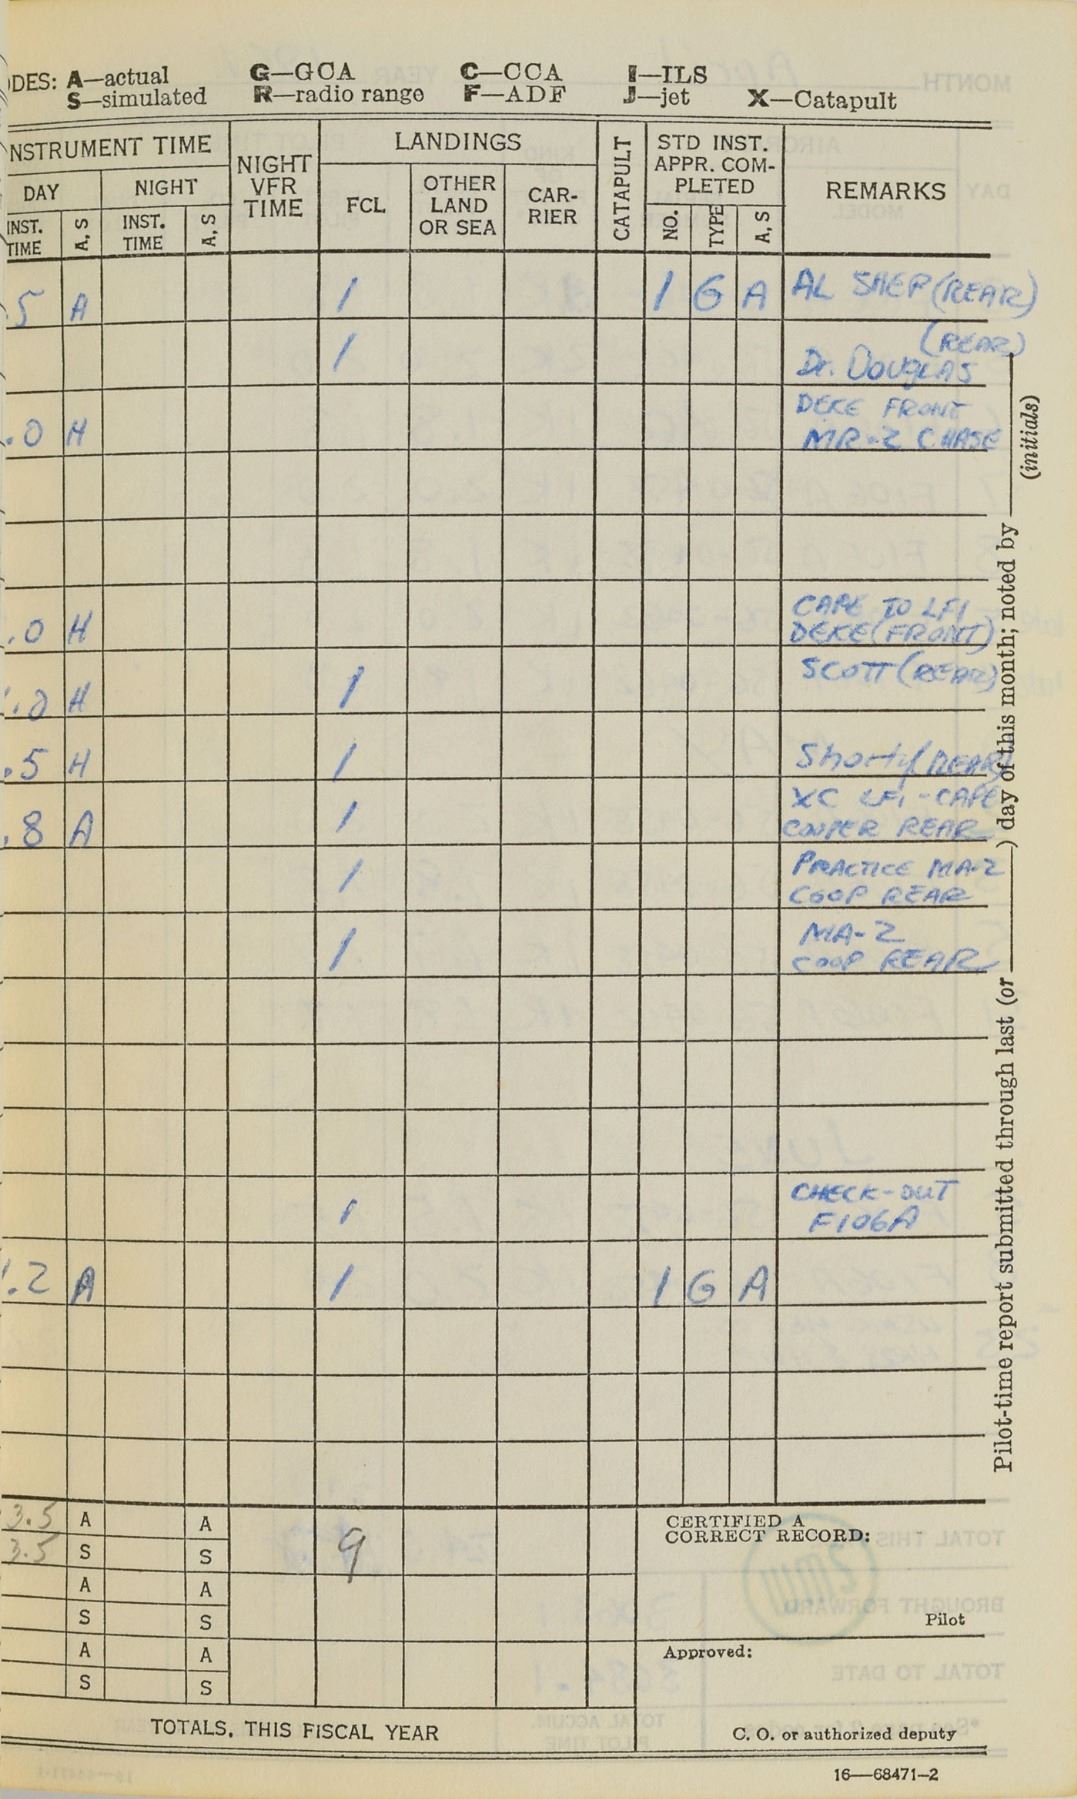 DES: A—actual G—GCA C—CCA I—ILS
S—simulated R—radio range F—ADF J—jet X—Catapult
NSTRUMENT TIME
DAY NIGHT
INST. TIME A, S INST. TIME A, S
NIGHT VFR TIME
LANDINGS
FCL OTHER LAND OR SEA CAR-RIER
CATAPULT
STD INST. APPR. COM-PLETED
NO. TYPE A, S
REMARKS
.5 A 1 1 G A AL SHEP (REAR)
1 (REAR)
Dr. DOUGLAS
DEKE FRONT
.0 H MR-2 CHASE
CAPE TO LFI
.0 H DEKE (FRONT)
SCOTT (REAR)
.0 H 1
.5 H 1 Shorty (REAR)
XC LFI-CAPE
.8 A 1 COOPER REAR
1 PRACTICE MA-2
COOP REAR
1 MA-2
COOP REAR
1 CHECK-OUT
F106A
1.2 A 1 1 G A
3.5 A A
3.5 S S 9
A A
S S
A A
S S
CERTIFIED A
CORRECT RECORD:
Pilot
Approved:
TOTALS, THIS FISCAL YEAR
C. O. or authorized deputy
16—68471-2
Pilot-time report submitted through last (or ) day of this month; noted by
(initials)